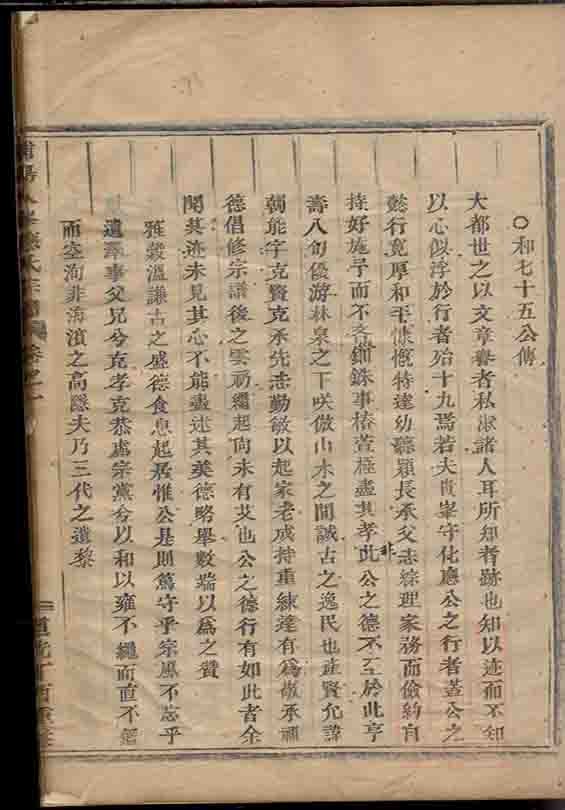 ○和七十五公傳
大都世之以文章譽者私淑諸人耳所知者跡也知以迹而不知
以心似浮於行者殆十九焉若夫貴峯守化應公之行者蓋公之
懿行寬厚和平慷慨特達幼聽穎長承父志綜理家務而儉約自
持好施予而不吝錙銖事椿萱極盡其孝此非公之德不至於此享
壽八旬優游林泉之下咲傲山水之間誠古之逸民也並賢允諱
能字克賢克承先志勤敏以起家老成持重練達有為敬承
德倡修宗譜後之雲礽繼起尚未有艾也公之德行有如此者余
聞其迹未見其心不能盡述其美德略舉數端以為之贊
雅穀溫謙古之盛德食息起居惟公是則篤守乎宗風不忘乎
遺澤事父兄兮克孝克恭處宗黨兮以和以雍不繩而直不
而空洵非海濱之高隱夫乃三代之遺黎
氏宗譜 卷之
道光丁酉重